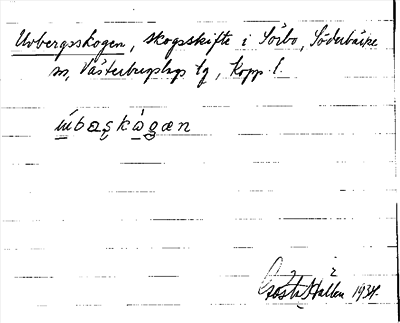 Uvbergsskogen, skogsskifte i Sörbo, Söderbärke
sn, Västerbergslags tg, Kopp. l.
Gösta Hallén 1934.